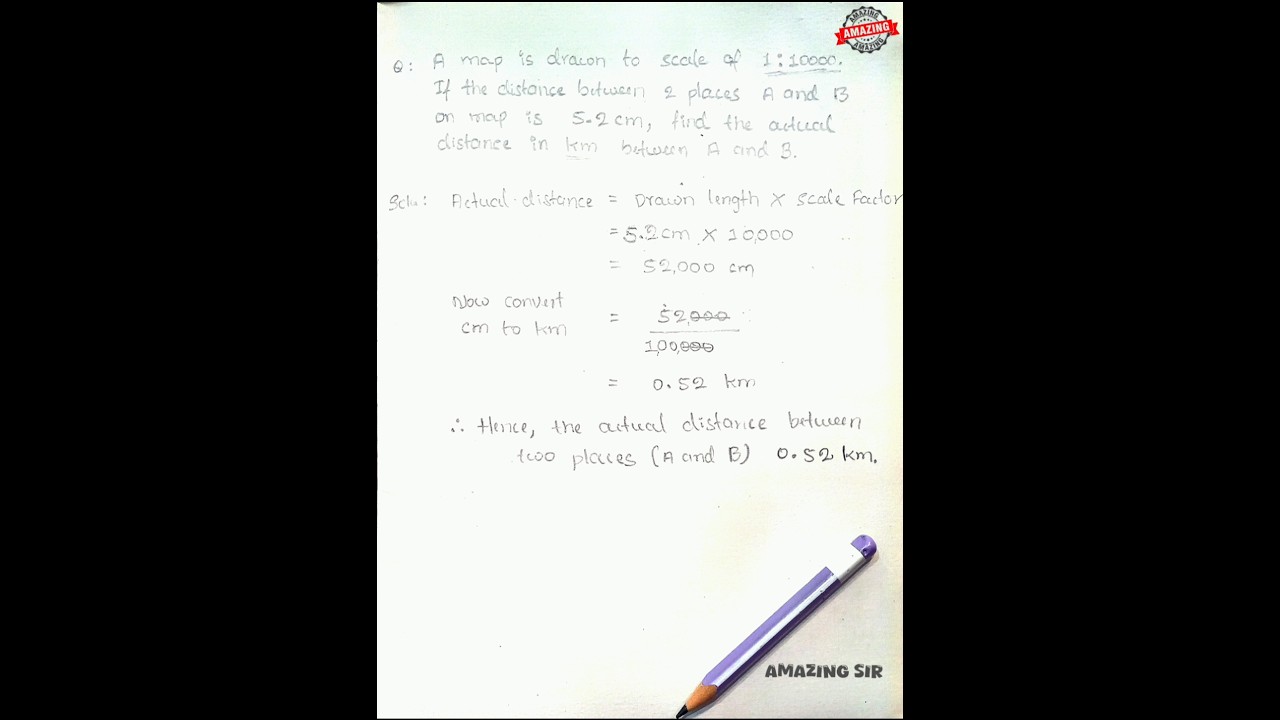 AMAZING
AMAZING
AMAZING
Q: A map is drawn to scale of 1:10000.
If the distance between 2 places A and B
on map is 5.2cm, find the actual
distance in km between A and B.
Solu: Actual distance = Drawn length X scale Factor
= 5.2cm X 10,000
= 52,000 cm
Now convert
cm to km
= 52,000
100,000
= 0.52 km
∴ Hence, the actual distance between
two places (A and B) 0.52 km.
AMAZING SIR